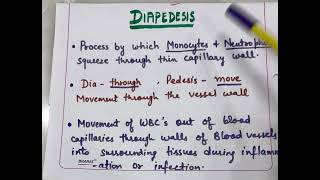 DIAPEDESIS
• Process by which Monocytes & Neutroph
squeeze through thin capillary wall.
• Dia - through, Pedesis - move
Movement through the vessel wall
• Movement of WBC's out of blood
capillaries through walls of Blood vessels
into surrounding tissues during inflamm
-ation or infection.